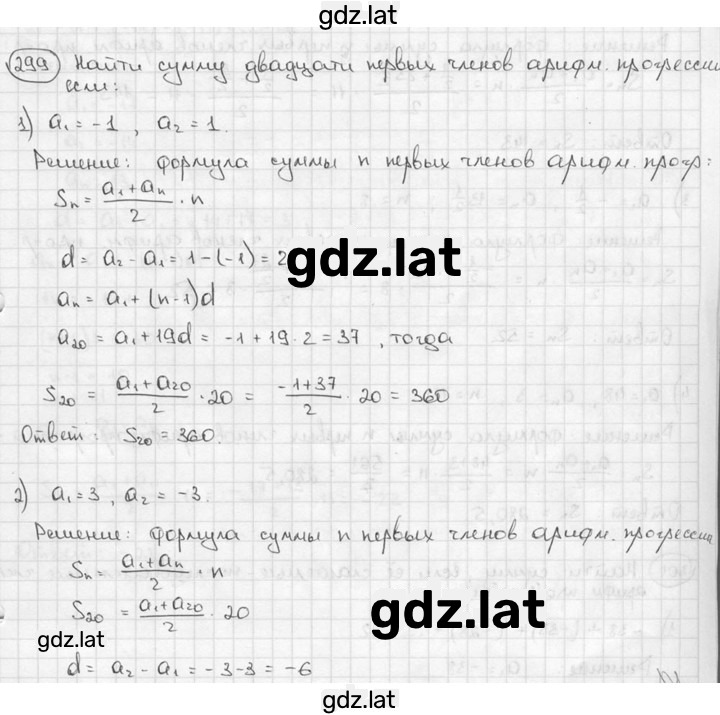 gdz.lat
299 Найти сумму двадцати первых членов арифм. прогрессии
если:
1) a₁ = -1 , a₂ = 1.
Решение: формула суммы n первых членов арифм. прогр:
Sₙ = (a₁ + aₙ)/2 · n
d = a₂ - a₁ = 1 - (-1) = 2
gdz.lat
aₙ = a₁ + (n-1)d
a₂₀ = a₁ + 19d = -1 + 19 · 2 = 37 , тогда
S₂₀ = (a₁ + a₂₀)/2 · 20 = (-1 + 37)/2 · 20 = 360
Ответ: S₂₀ = 360.
2) a₁ = 3 , a₂ = -3.
Решение: формула суммы n первых членов арифм. прогрессии
Sₙ = (a₁ + aₙ)/2 · n
S₂₀ = (a₁ + a₂₀)/2 · 20
gdz.lat
gdz.lat
d = a₂ - a₁ = -3 - 3 = -6